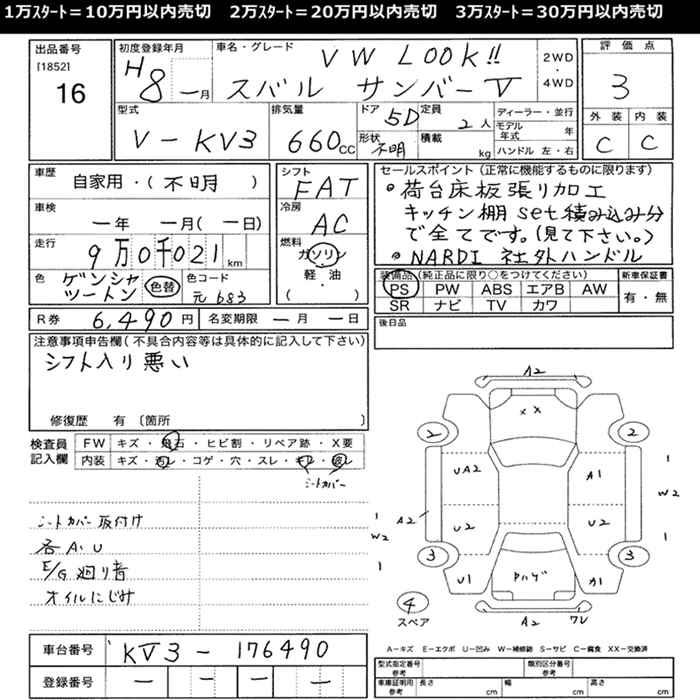 1万ｽﾀｰﾄ＝10万円以内売切　2万ｽﾀｰﾄ＝20万円以内売切　3万ｽﾀｰﾄ＝30万円以内売切
出品番号
[1852]
16
初度登録年月
H8 ー月
車名・グレード
VW LOOK!!
スバル サンバーV
2WD・4WD
評価点
3
外装 内装
C C
型式
V-KV3
排気量
660cc
ドア 5D
定員 2人
形状 不明
積載 kg
ディーラー・並行
モデル年式 年
ハンドル 左・右
車歴
自家用・(不明)
車検
ー年 ー月(ー日)
走行
9万0千021km
色
ゲンシャ
ツートン
色替
色コード
元683
シフト
FAT
冷房
AC
燃料
ガソリン
軽・油
( )
セールスポイント(正常に機能するものに限ります)
●荷台床板張り加工
キッチン棚set積み込み分
で全てです。(見て下さい。)
●NARDI 社外ハンドル
装備品(純正品に限り○をつけてください) 新車保証書
PS PW ABS エアB AW 有・無
SR ナビ TV カワ
R券 6,490円 名変期限 ー月 ー日
後日品
注意事項申告欄(不具合内容等は具体的に記入して下さい)
シフト入り悪い
修復歴 有〔箇所 〕
検査員
記入欄
FW キズ・飛石・ヒビ割・リペア跡・X要
内装 キズ・汚レ・コゲ・穴・スレ・キレ・破レ
シートカバー
シートカバー取付け
各A、U
E/G廻り音
オイルにじみ
A2
××
2 2
UA2 A1
1
W2
A2
U2 U2
1
W2
3 3
1
1
U1 Pハゲ A1
4
スペア
A2 ワレ
A－キズ E－エクボ U－凹み W－補修跡 S－サビ C－腐食 XX－交換済
車台番号 KV3-176490
登録番号 ー ー ー ー
型式指定番号 参考 類別区分番号 参考
車庫証明用 参考 長さ cm 幅 cm 高さ cm